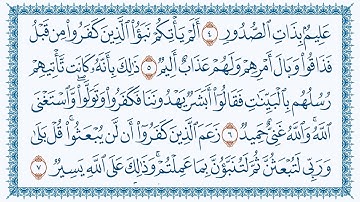 عَلِيمٌۢ بِذَاتِ ٱلصُّدُورِ ٤ أَلَمۡ يَأۡتِكُمۡ نَبَؤُاْ ٱلَّذِينَ كَفَرُواْ مِن قَبۡلُ
فَذَاقُواْ وَبَالَ أَمۡرِهِمۡ وَلَهُمۡ عَذَابٌ أَلِيمٞ ٥ ذَٰلِكَ بِأَنَّهُۥ كَانَت تَّأۡتِيهِمۡ
رُسُلُهُم بِٱلۡبَيِّنَٰتِ فَقَالُوٓاْ أَبَشَرٞ يَهۡدُونَنَا فَكَفَرُواْ وَتَوَلَّواْۖ وَّٱسۡتَغۡنَى
ٱللَّهُۚ وَٱللَّهُ غَنِيٌّ حَمِيدٞ ٦ زَعَمَ ٱلَّذِينَ كَفَرُوٓاْ أَن لَّن يُبۡعَثُواْۚ قُلۡ بَلَىٰ
وَرَبِّي لَتُبۡعَثُنَّ ثُمَّ لَتُنَبَّؤُنَّ بِمَا عَمِلۡتُمۡۚ وَذَٰلِكَ عَلَى ٱللَّهِ يَسِيرٞ ٧